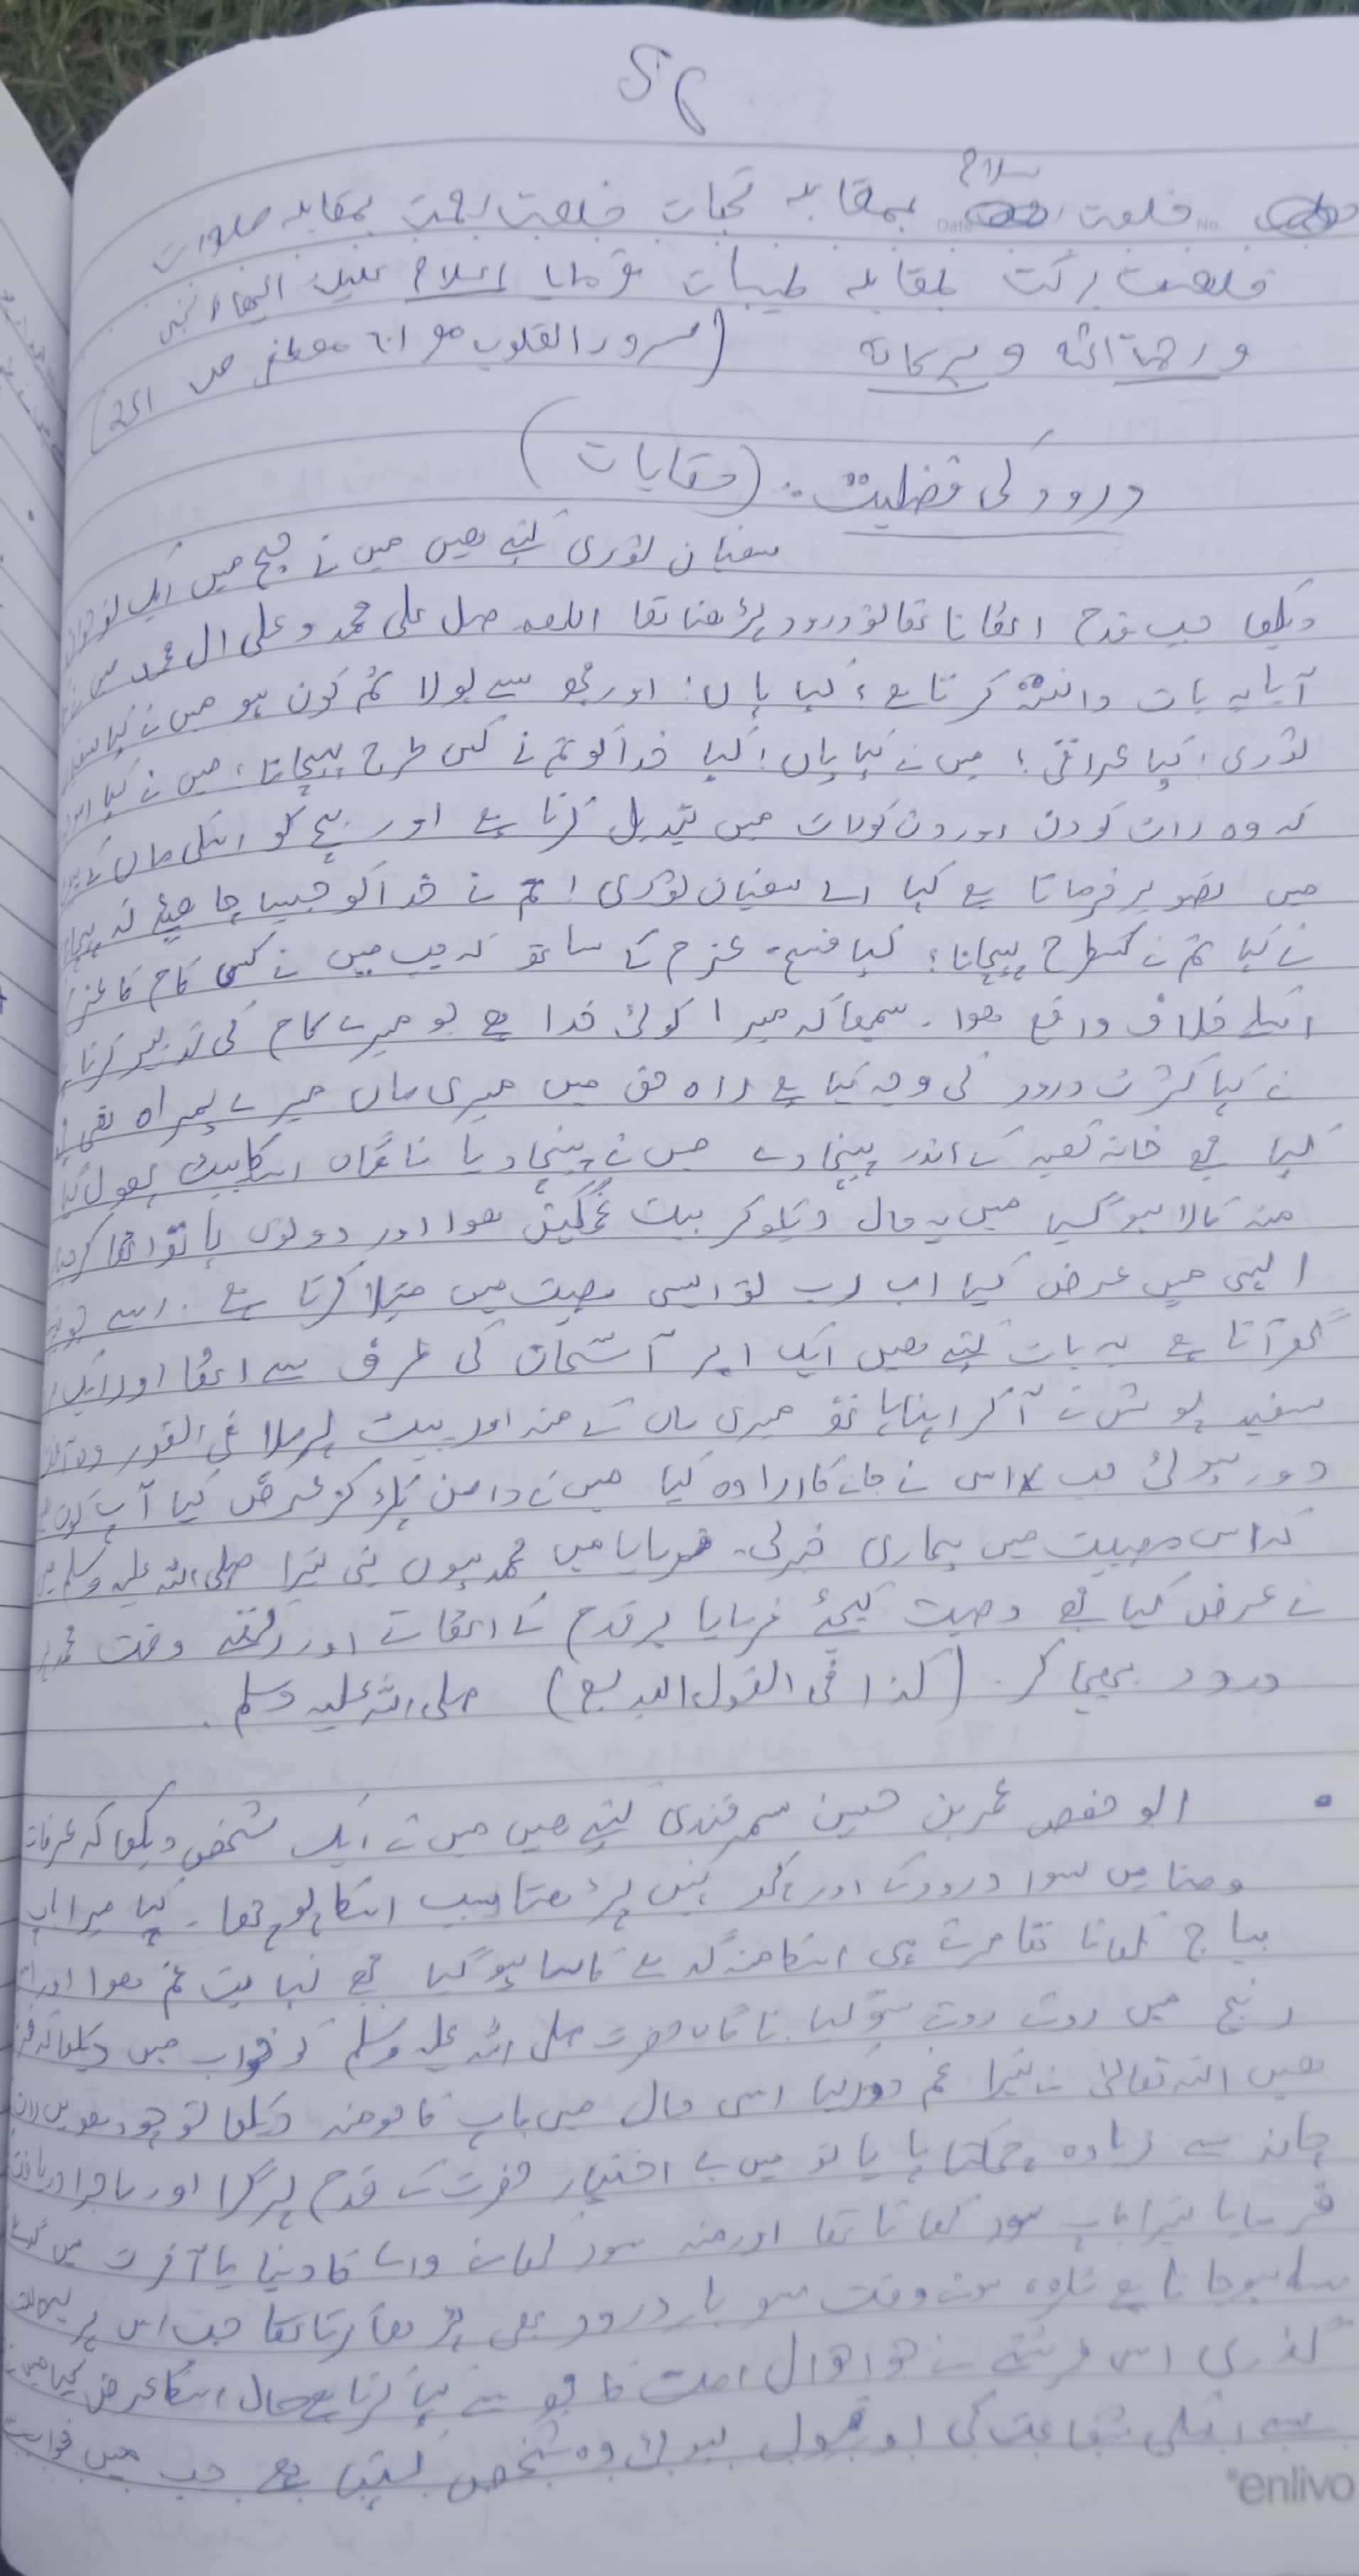 خلعت سلام بمقابلہ تحیات خلعت رحمت بمقابلہ صلوات
خلعت برکت بمقابلہ طیبات فرمایا السلام علیک ایھا النبی
ورحمۃ اللہ و برکاتہ (سرور القلوب ص 251)
درود کی فضلیت :. (حقایات)
سفیان ثوری کہتے ھیں میں نے حج میں ایک نوجوان
دیکھا جب قدم اٹھاتا تھا تو درود پڑھتا تھا اللھم صل علی محمد و علی ال محمد میں نے
آیا یہ بات دانستہ کرتا ہے، کہا ہاں! اور مجھ سے بولا تم کون ہو میں نے کہا سفیان
ثوری، کہا عراقی؟ میں نے کہا ہاں! کہا خدا کو تم نے کس طرح پہچانا، میں نے کہا
کہ وہ رات کو دن اور دن کو رات میں تبدیل کرتا ہے اور بچے کو اسکی ماں کے
میں تصویر فرماتا ہے کہا اے سفیان ثوری! تم نے خدا کو جیسا چاھیئے نہ پہچانا
نے کہا تم نے کسطرح پہچانا؟ کہا فسخ عزم کے ساتھ کہ جب میں نے کسی کام کا عزم
اسکے خلاف واقع ھوا۔ سمجھا کہ میرا کوئی خدا ہے جو میرے کام کی تدبیر کرتا
نے کہا کثرت درود کی وجہ کیا ہے راہ حق میں میری ماں میرے ہمراہ تھی
کہا مجھے خانہ کعبہ کے اندر پہنچا دے میں نے پہنچا دیا ناگاں اسکا پیٹ پھول گیا
منہ کالا ہو گیا میں یہ حال دیکھ کر بہت غمگین ھوا اور دونوں ہاتھ اٹھا کر
الہی میں عرض کیا اے رب تو ایسی مصیبت میں مبتلا کرتا ہے. اسے جو تیرے
گھر آتا ہے یہ بات کہتے ھیں ایک ابر آسمان کی طرف سے اٹھا اور ایک
سفید پوش نے آکر اپنا ہاتھ میری ماں کے منہ اور پیٹ پر ملا فی الفور وہ
دور ہوئی جب اس نے جانے کا ارادہ کیا میں نے دامن پکڑ کر عرض کیا آپ کون
کہ اس مصیبت میں ہماری خبر لی۔ فرمایا میں محمد ہوں نبی تیرا صلی اللہ علیہ وسلم میں
نے عرض کیا مجھے وصیت کیجئے فرمایا ہر قدم کے اٹھاتے اور رکھتے وقت محمد
درود بھیجا کر. (کذا فی القول البدیع) صلی اللہ علیہ وسلم.
• ابو حفص عمر بن حسین سمرقندی کہتے ھیں میں نے ایک شخص دیکھا کہ عرفات
و منا میں سوا درود کے اور کچھ نہیں پڑھتا سبب اسکا پوچھا. کہا میرا باپ
بیاج کھاتا تھا مرتے ہی اسکا منہ گدھے کا سا ہو گیا مجھے نہایت غم ھوا اور
رنج میں روتے روتے سو گیا ناگاہ حضرت صلی اللہ علیہ وسلم کو خواب میں دیکھا کہ
ھیں اللہ تعالیٰ نے تیرا غم دور کیا اسی حال میں باپ کا جو منہ دیکھا تو چودھویں رات
چاند سے زیادہ چمکتا پایا تو میں بے اختیار حضرت کے قدم پر گرا اور ماجرا دریافت
فرمایا تیرا باپ سود کھاتا تھا اور منہ سود کھانے والے کا دنیا یا آخرت میں گدھے
سا ہو جاتا ہے وقت سو بار درود بھی پڑھا کرتا تھا جب اس پر یہ حالت
گذری اس فرشتے نے جو احوال امت کا مجھ سے کرتا ہے حال اسکا عرض کیا میں
نے اسکی شفاعت کی اور قبول ہوئی وہ شخص کہتا ہے جب میں خواب سے
enlivo